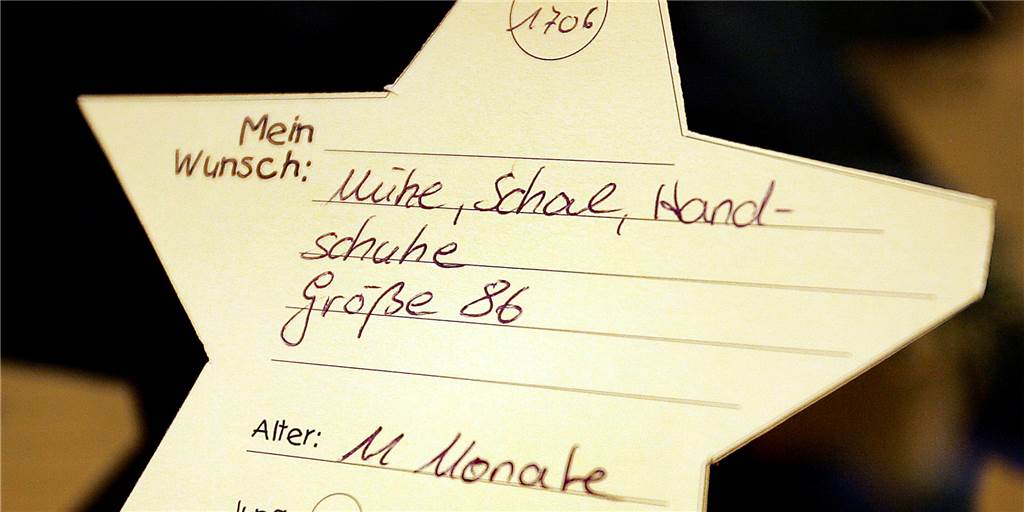 1706
Mein
Wunsch:
Mütze, Schal, Hand-
schuhe
Größe 86
Alter: 11 Monate